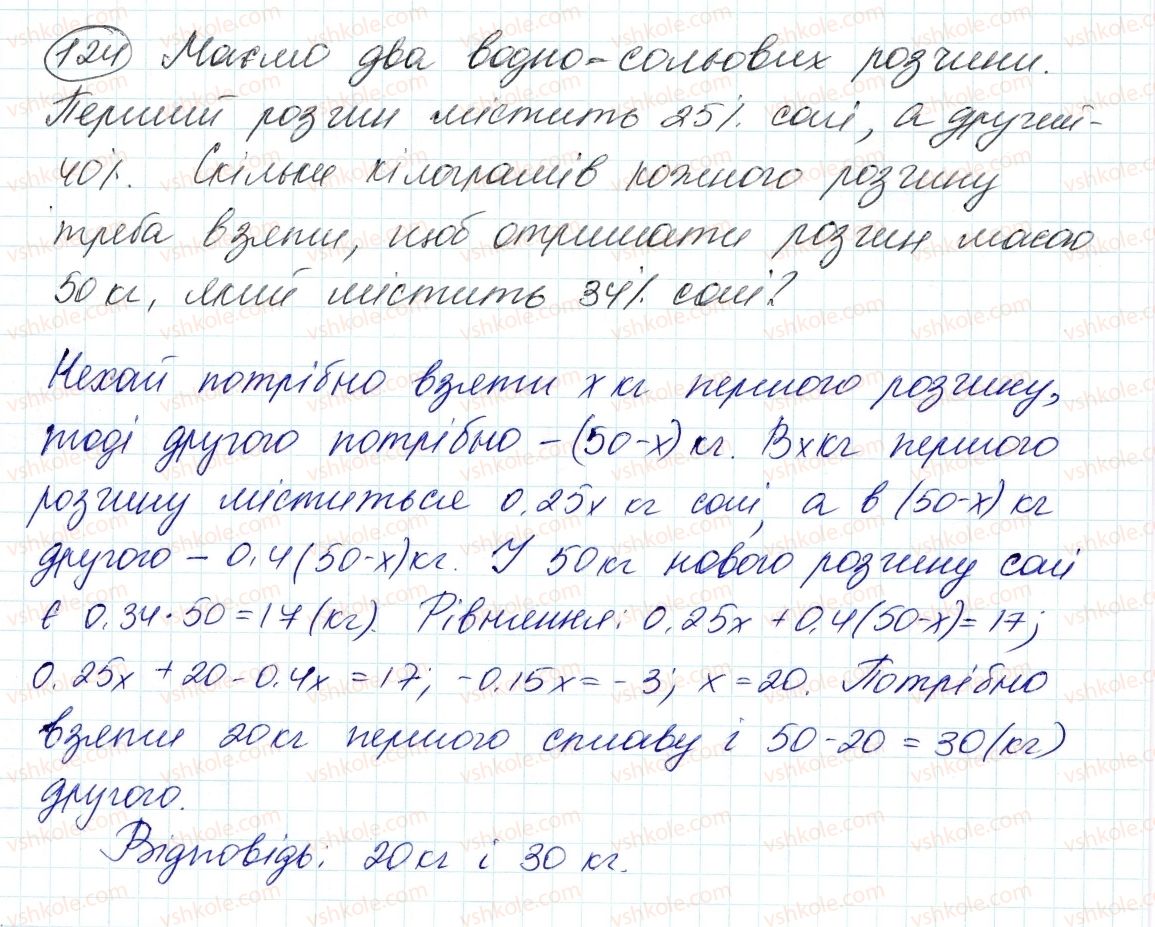 124 Маємо два водно-сольових розчини.
Перший розчин містить 25% солі, а другий -
40%. Скільки кілограмів кожного розчину
треба взяти, щоб отримати розчин масою
50 кг, який містить 34% солі?
Нехай потрібно взяти x кг першого розчину,
тоді другого потрібно - (50-x) кг. В x кг першого
розчину міститься 0,25x кг солі, а в (50-x) кг
другого - 0,4(50-x) кг. У 50 кг нового розчину солі
є 0,34·50=17(кг). Рівняння: 0,25x+0,4(50-x)=17;
0,25x+20-0,4x=17; -0,15x=-3; x=20. Потрібно
взяти 20 кг першого сплаву і 50-20=30(кг)
другого.
Відповідь: 20 кг і 30 кг.